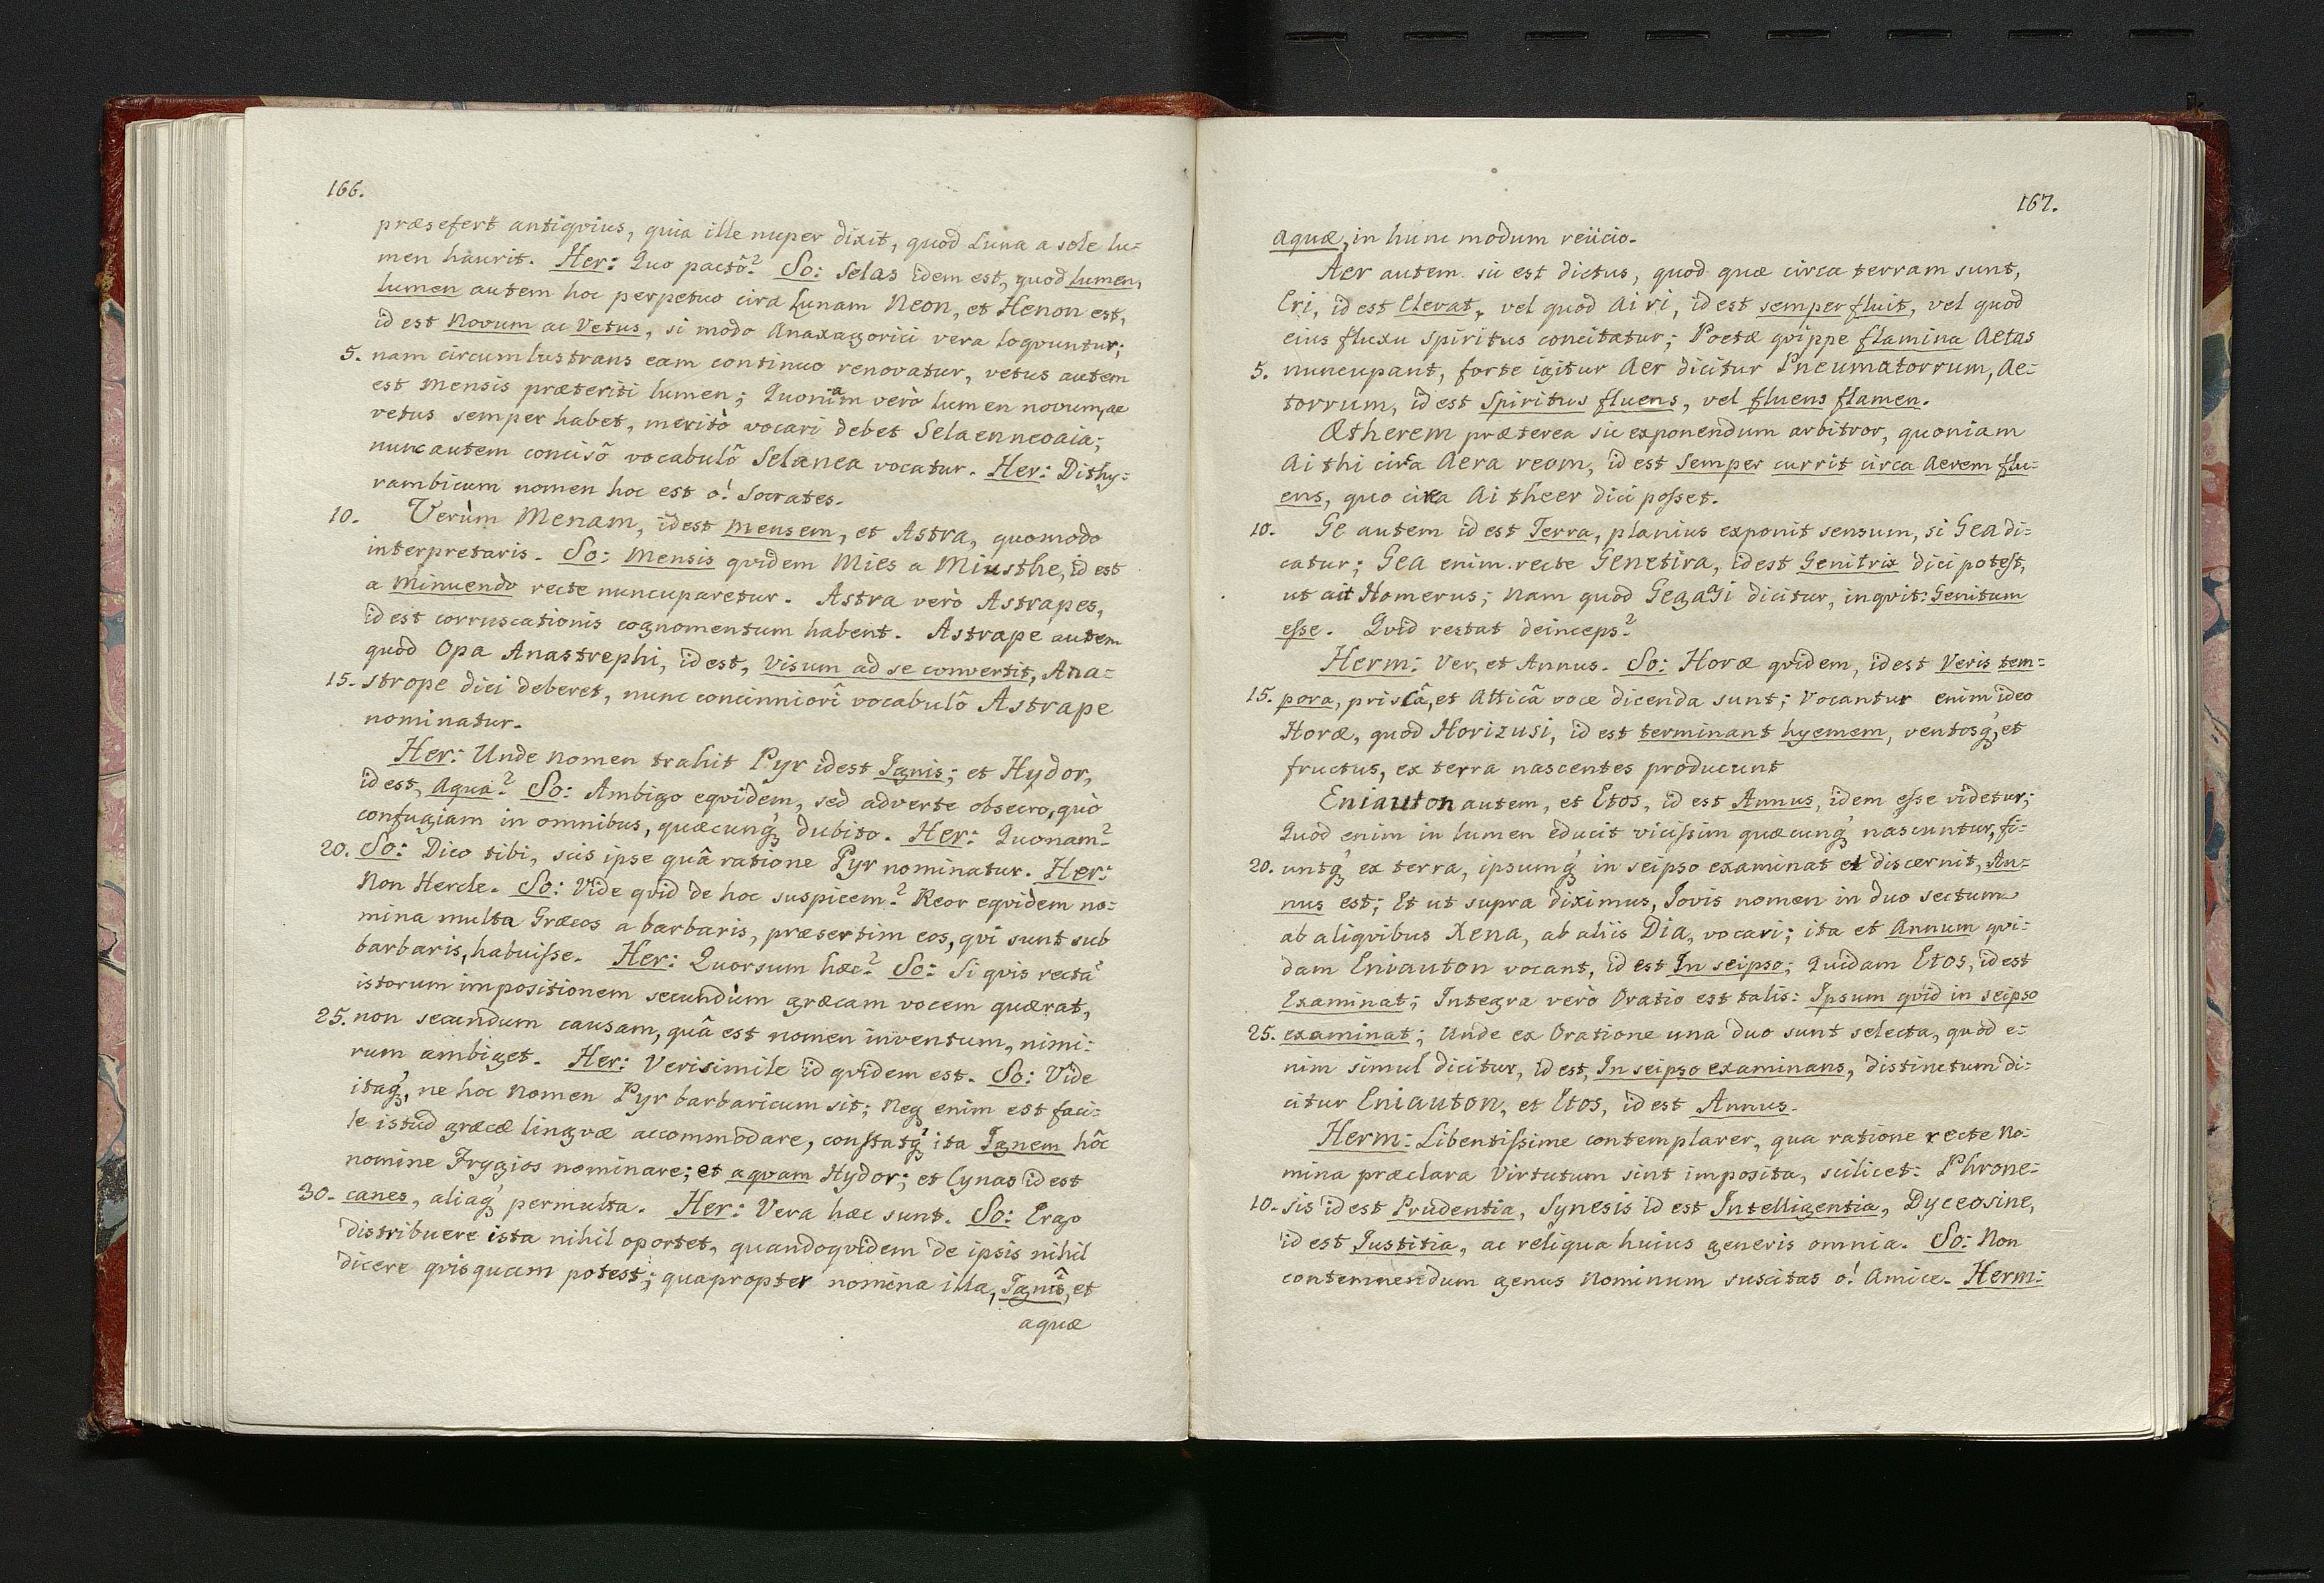 166.
præsefert antiqvius, quia ille nuper dixit, quod Luna a sole lu=
men haurit. Her: Quo pactô? So: Selas idem est, quod lumen,
lumen autem hoc perpetuo cira Lunam Neon, et Henon est,
id est Novum ac Vetus, si modo Anaxagorici vera loqvuntur;
5. nam circumlustrans eam continuo renovatur, vetus autem
est mensis præteriti lumen; Quoniam verò lumen novum, ac
vetus semper habet, meritò vocari debet Selaenneoaia;
nunc autem concisô vocabulô Selanea vocatur. Her: Dithy=
rambicum nomen hoc est o! Socrates.
10. Verùm Menam, id est mensem, et Astra, quomodo
interpretaris. So: Mensis qvidem Mies a Miusthe, id est
a Minuendo recte nuncuparetur. Astra verò Astrapes,
id est corruscationis cognomentum habent. Astrape autem
quod Opa Anastrephi, id est, visum ad se convertit, Ana=
15. strope dici deberet, nunc concinniorî vocabulô Astrape
nominatur.
Her: Unde nomen trahit Pyr id est Ignis; et Hydor,
id est, Aqua? So: Ambigo eqvidem, sed adverte obsecro, quò
confugiam in omnibus, quæcunq́ꝫ dubito. Her: Quonam?
20. So: Dico tibi, scis ipse quâ ratione Pyr nominatur. Her:
Non Hercle. So: Vide qvid de hoc suspicem? Reor eqvidem no=
mina multa Græcos a barbaris, præsertim eos, qvi sunt sub
barbaris, habuiſse. Her: Quorsum hæc? So: Si qvis rectà
istorum impositionem secundùm græcam vocem quærat,
25. non secundum causam, quâ est nomen inventum, nimi=
rum ambiget. Her: Verisimile id qvidem est. So: Vide
itaq́ꝫ, ne hoc nomen Pyr barbaricum sit; Neqꝫ enim est faci=
le istud græcæ lingvæ accommodare, conſtatq́ꝫ ita Ignem hôc
nomine Frygios nominare; et aqvam Hydor; et Cynas id est
30. canes, aliaq́ꝫ permulta. Her: Vera hæc sunt. So: Ergo
distribuere ista nihil oportet, quandoqvidem de ipsis nihil
dicere qvisquam potest; quapropter nomina illa, Ignis, et
aquæ
167.
Aquæ, in hunc modum reiicio.
Aer autem sic est dictus, quod quæ circa terram sunt,
Eri, id est Elevat, vel quod Ai ri, id est semper fluit, vel quod
eius fluxu spiritus concitatur; Poetæ qvippe flamina Aetas
5. nuncupant, forte igitur Aer dicitur Pneumatorrum, Ae=
torrum, id est spiritus fluens, vel fluens flamen.
Ætherem præterea sic exponendum arbitror, quoniam
Ai thi circa Aera reom, id est semper currit circa Aerem flu=
ens, quo circa Ai theer dici poſset.
10. Ge autem id est Terra, planius exponit sensum, si Gea di=
catur; Gea enim recte Genetira, id est Genitrix dici poteſt,
ut ait Homerus; nam quod Gegagi dicitur, inqvit: Genitum
eſse. Qvid restat deinceps?
Herm: Ver, et Annus. So: Horæ qvidem, id est Veris tem=
15. pora, priscâ, et Atticâ voce dicenda sunt; Vocantur enim ideo
Horæ, quod Horizusi, id est terminant hyemem, ventosq́ꝫ, et
fructus, ex terra nascentes producunt
Eniauton autem, et Etos, id est Annus, idem eſse videtur;
Quod enim in lumen educit viciſsim quæcunq́ꝫ nascuntur, fi=
20. untq́ꝫ ex terra, ipsumq́ꝫ in seipso examinat et discernit, An=
nus est; Et ut supra diximus, Jovis nomen in duo sectum
ab aliqvibus Xena, ab aliis Dia, vocari; ita et Annum qvi=
dam Eniauton vocant, id est In seipso; Quidam Etos, id est
Examinat; Integra verò Oratio est talis: Ipsum qvid in seipso
25. examinat; Unde ex Oratione una duo sunt selecta, quod e=
nim simul dicitur, id est, In seipso examinans, distinctum di=
citur Eniauton, et Etos, id est Annus.
Herm: Libentiſsime contemplarer, qua ratione recte No=
mina præclara Virtutum sint imposita, scilicet: Phrone=
10. sis id est Prudentia, Synesis id est Intelligentia, Dyceosine,
id est Justitia, ac reliqua huius generis omnia. So: Non
contemnendum genus Nominum suscitas o! Amice. Herm: